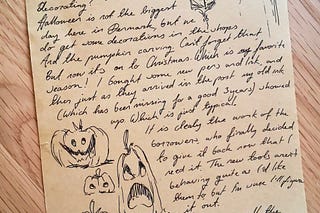 decorating?
Halloween is not the biggest
day here in Denmark, but we
do get some decorations in the shops
And the pumpkin carving. Can't forget that
But now it's on to Christmas. Which is my favorite
season! I bought some new pens and ink, and
then just as they arrived in the post my old ink
(which has been missing for a good 3 years) showed
up. Which is just typical
It is clearly the work of the
borrowers who finally decided
to give it back now that I
need it. The new tools aren't
behaving quite as I'd like
them to but I'm sure I'll figure
it out.
the